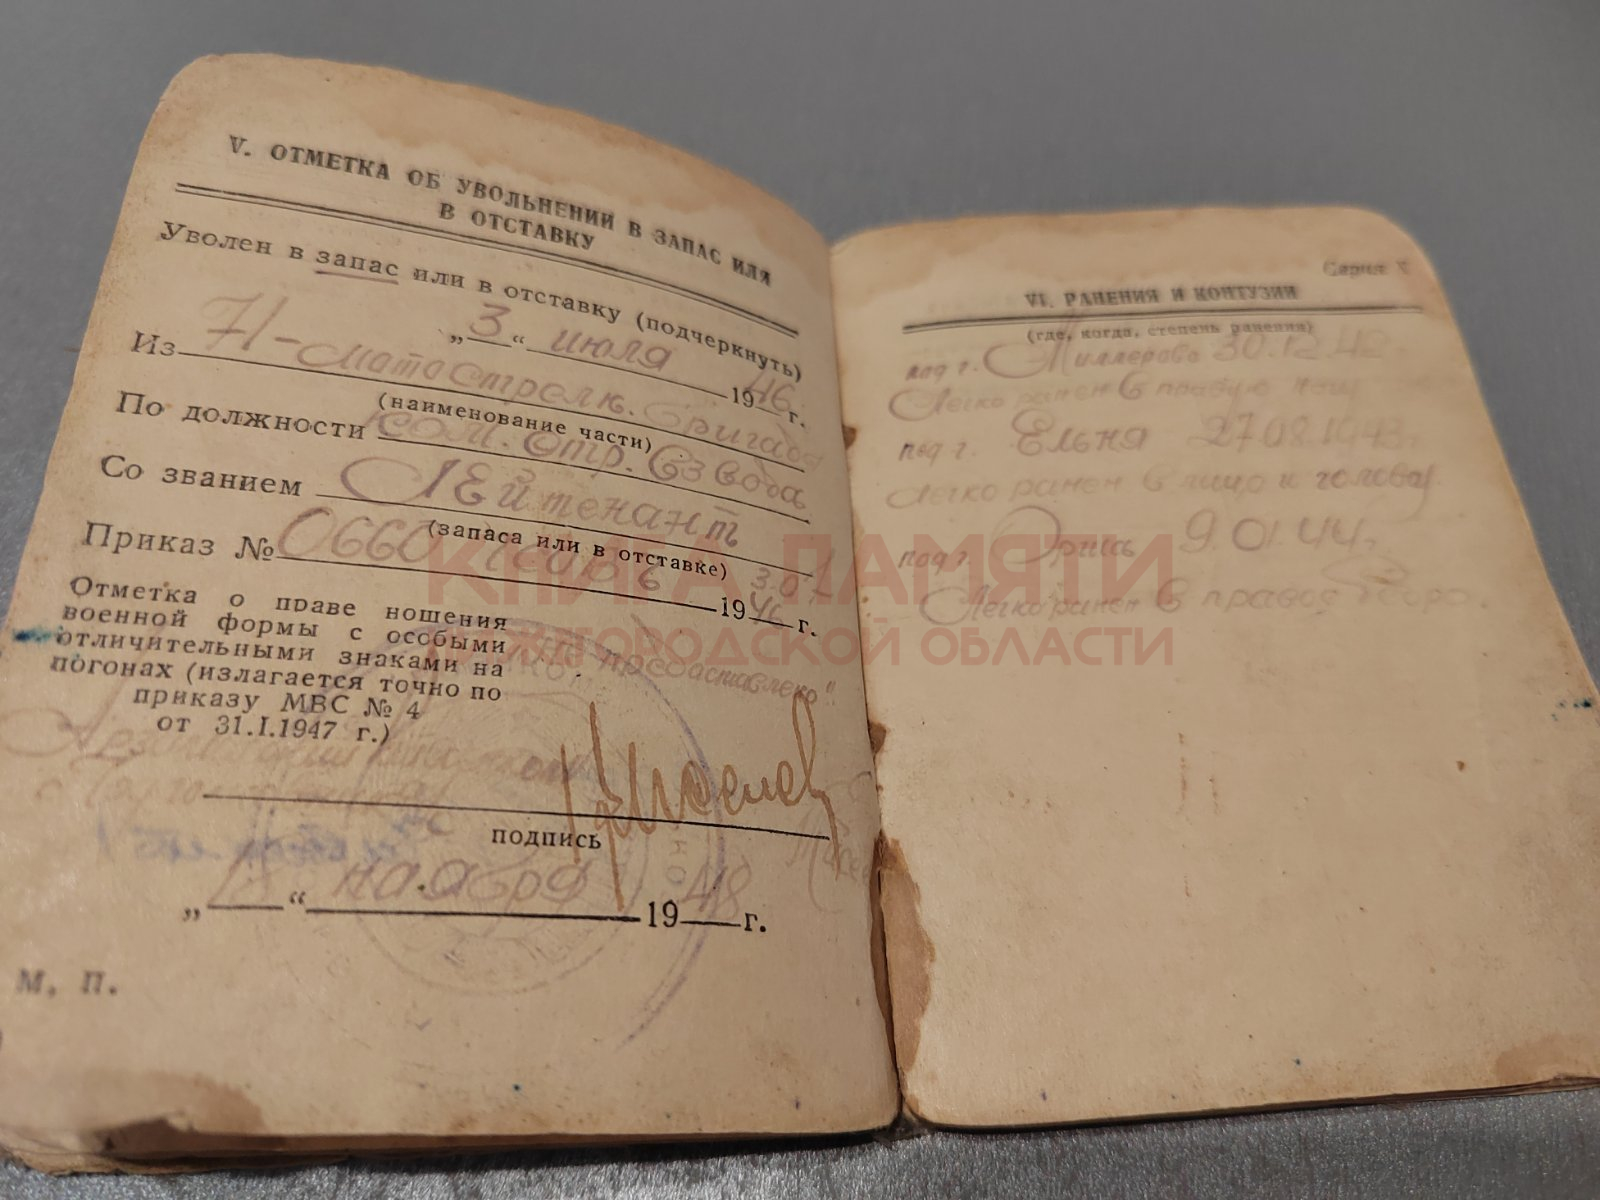 V. ОТМЕТКА ОБ УВОЛЬНЕНИИ В ЗАПАС ИЛИ
В ОТСТАВКУ
Уволен в запас или в отставку (подчеркнуть)
„ 3 “ июля 1946 г.
Из 71-мотострелк. бригады
(наименование части)
По должности ком. стр. взвода
Со званием Лейтенант
(запаса или в отставке)
Приказ № 0660 3.07 1946 г.
Отметка о праве ношения
военной формы с особыми
отличительными знаками на
погонах (излагается точно по
приказу МВС № 4
от 31.I.1947 г.)
предоставлено"
подпись
„ 18 “ ноября 1948 г.
М. П.
Серия
VI. РАНЕНИЯ И КОНТУЗИИ
(где, когда, степень ранения)
под г. Миллерово 30.12.42г.
Легко ранен в правую ногу
под г. Ельня 1943г.
Легко ранен в лицо и голову
под г. Орша 9.01.44г.
Легко ранен в правое бедро.
КНИГА ПАМЯТИ
НИЖЕГОРОДСКОЙ ОБЛАСТИ